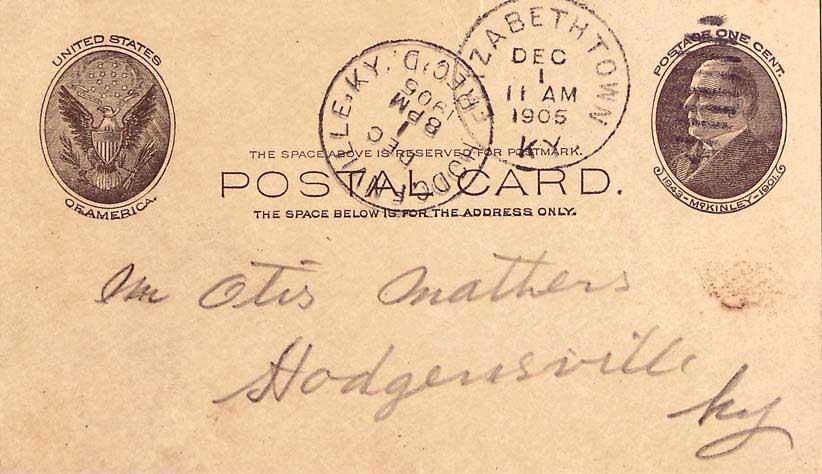 UNITED STATES
OF AMERICA.
HODGENVILLE, KY.
REC'D.
DEC
1
8 PM
1905
ELIZABETHTOWN
DEC
1
11 AM
1905
KY
POSTAGE ONE CENT.
1843-McKINLEY-1901.
THE SPACE ABOVE IS RESERVED FOR POSTMARK.
POSTAL CARD.
THE SPACE BELOW IS FOR THE ADDRESS ONLY.
Otis Mathers
Hodgensville
Ky